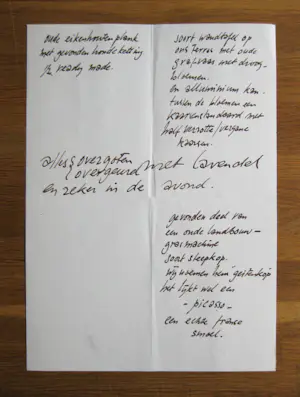 oude eikenhouten plank
met gevonden hondeketting
ready made.
soort wandtafel op
ons terras met oude
grafvaas met droog-
bloemen.
en alluminium kan.
tussen de bloemen een
kaarsenstandaard met
half verrotte/vergane
kaarsen.
alles { overgoten
{ overgeurd met lavendel
en zeker in de avond.
gevonden deel van
een oude landbouw-
gras machine
soort sleepkop.
wij noemen hem geitenkop
het lijkt wel een
- picasso -
een echte franse
smoel.